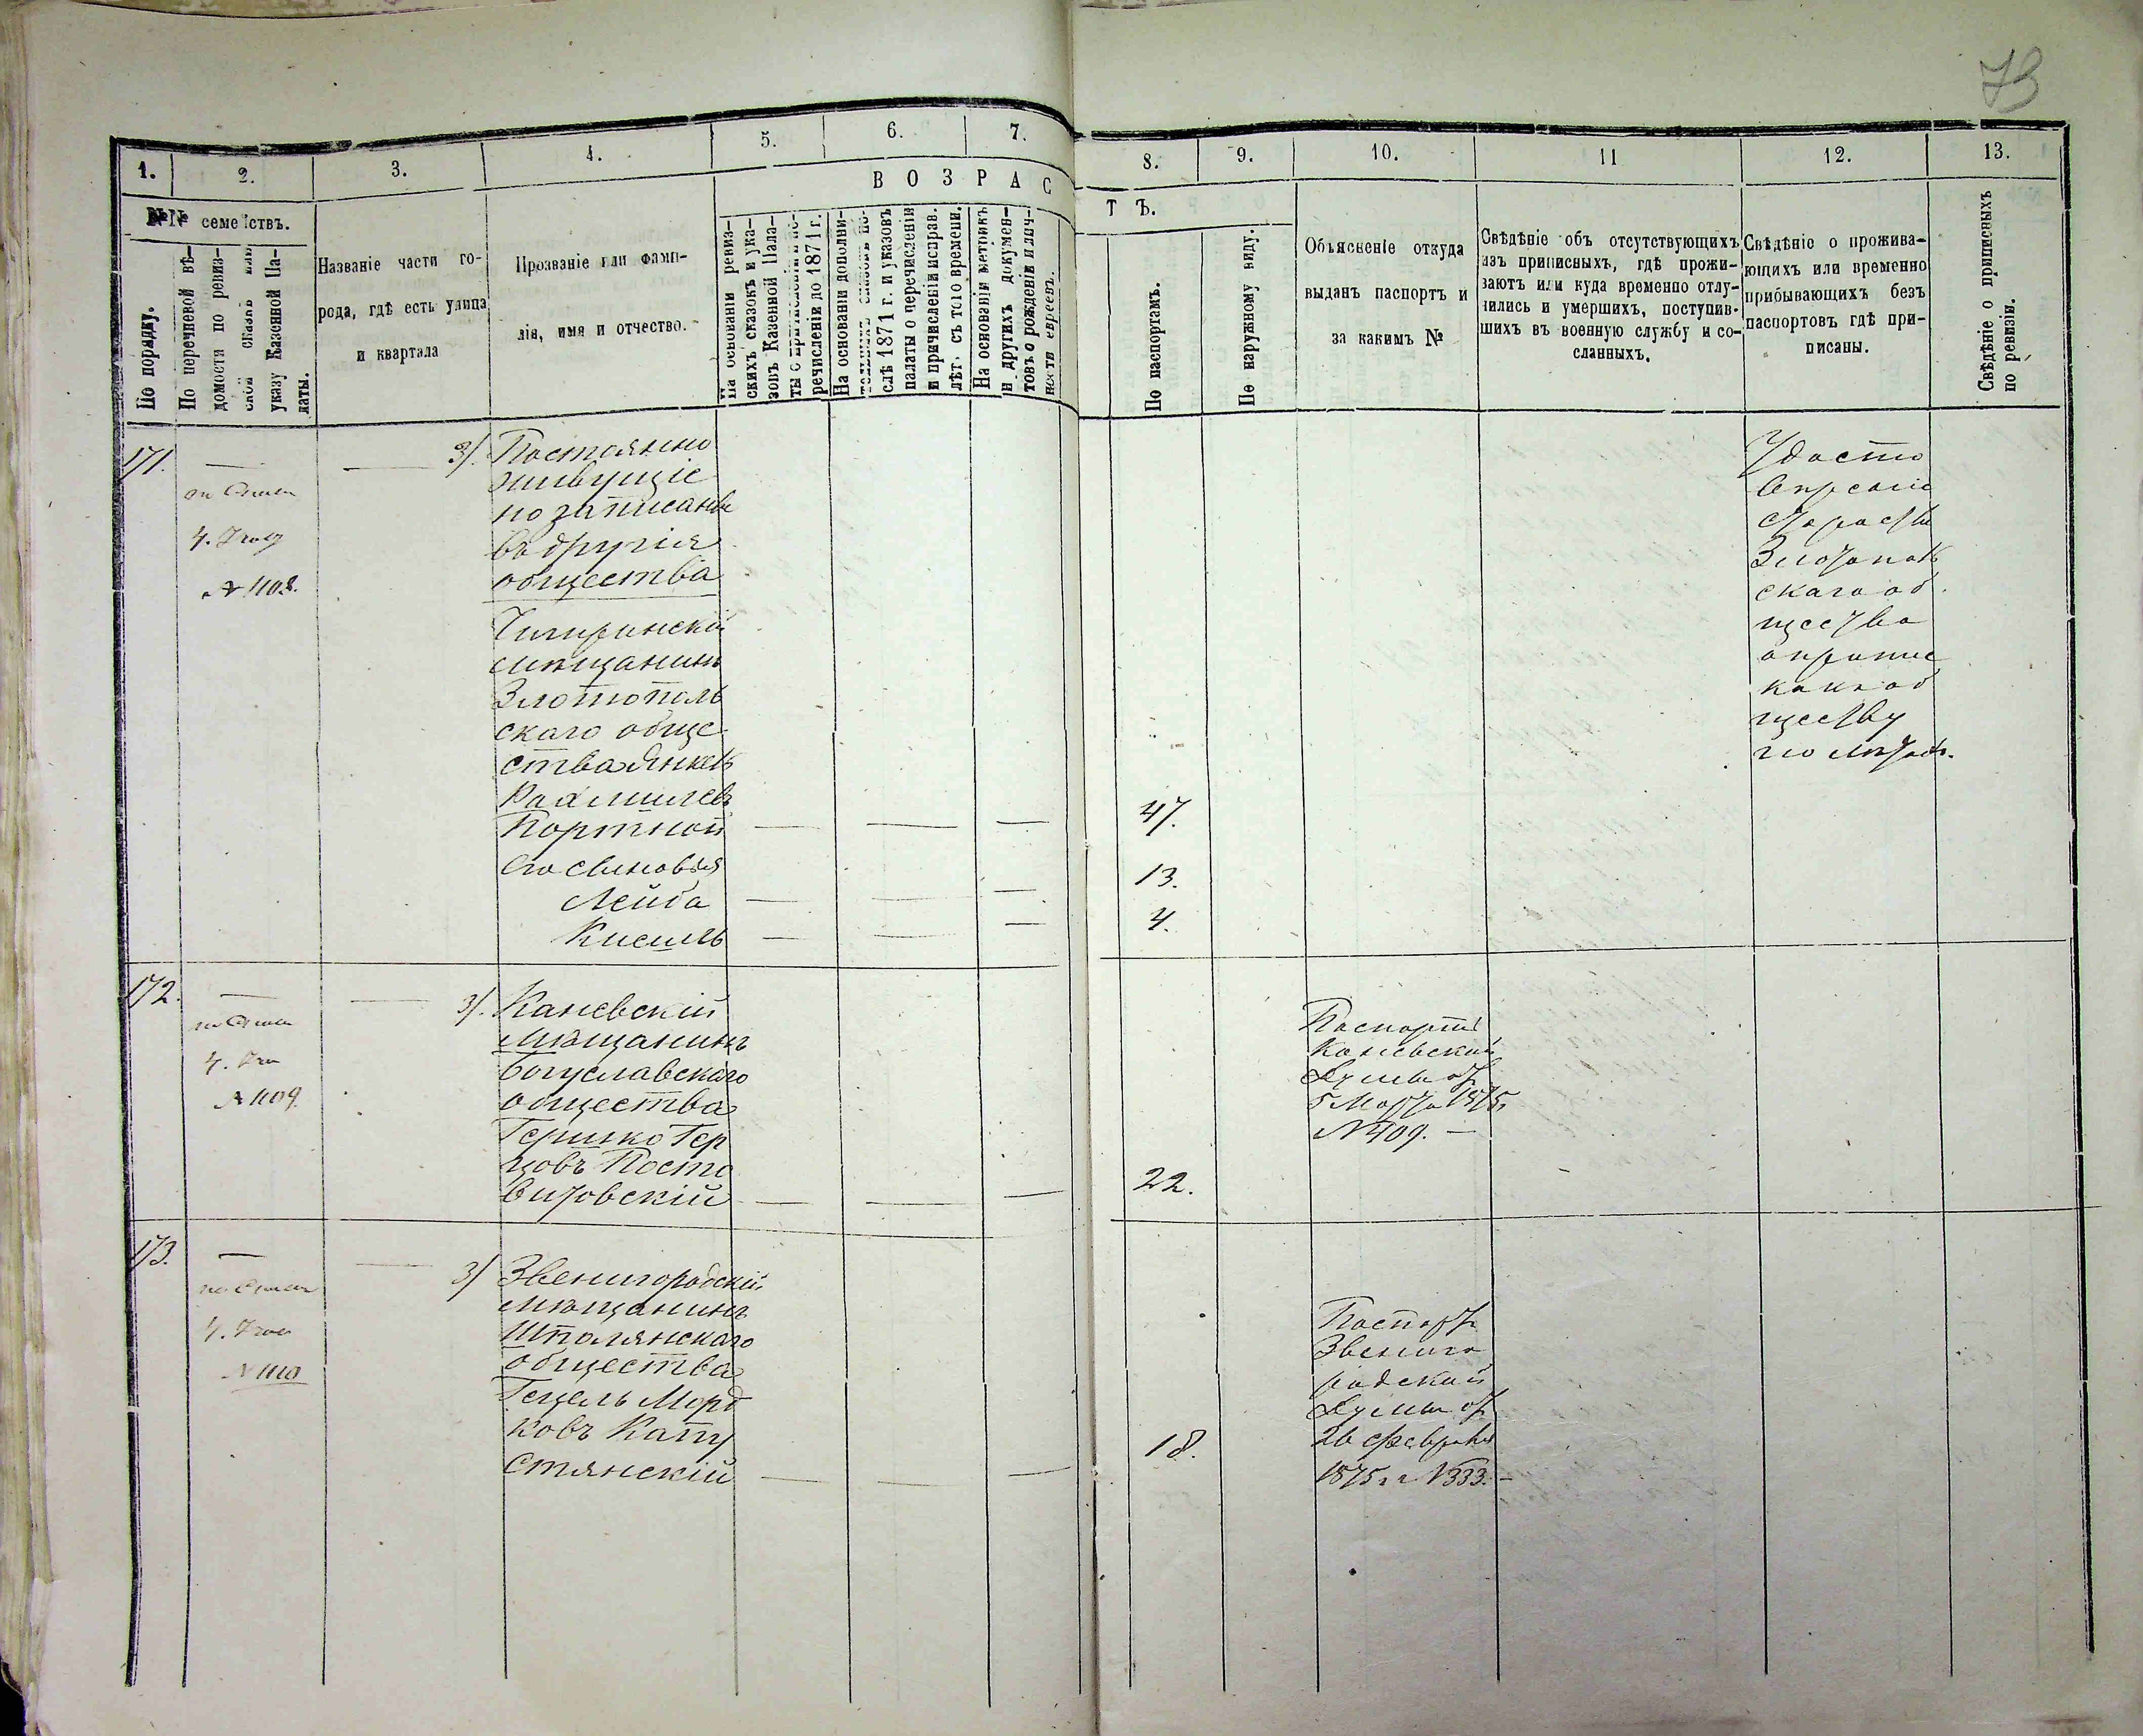 73
1.
2.
3.
4.
5.
6.
7.
8.
9.
10.
11
12.
13.
В О З Р А С
Т Ъ.
№№ семействъ.
По порядку.
По перечновой вѣ-
домости по ревиз-
ской сказкѣ или
указу Казенной Па-
латы.
Названіе части го-
рода, гдѣ есть улица
и квартала
Прозваніе или фами-
лія, имя и отчество.
На основаніи ревиз-
скихъ сказокъ и ука-
зовъ Казенной Пала-
ты о
речисленіи до 1871 г.
На основаніи дополни-
слѣ 1871 г. и указовъ
палаты о перечисленіи
и причисленіи исправ.
лѣт. съ того времени.
На основаніи метрикъ
и другихъ докумен-
товъ о рожденіи и лич-
ности евреевъ.
По паспортамъ.
По наружному виду.
Объясненіе откуда
выданъ паспортъ и
за какимъ №
Свѣдѣніе объ отсутствующихъ
изъ приписныхъ, гдѣ прожи-
ваютъ или куда временно отлу-
чились и умершихъ, поступив-
шихъ въ военную службу и со-
сланныхъ.
Свѣдѣніе о прожива-
ющихъ или временно
прибывающихъ безъ
паспортовъ гдѣ при-
писаны.
Свѣдѣніе о приписныхъ
по ревизіи.
171.
№ 1108.
3/. Постоянно
живущіе
но записаны
въ другія
общества
Чигиринскій
мѣщанинъ
Златополь
скаго обще
ства Янкель
Рахмилевъ
Портной
Его сыновья
Лейба
Кисиль
47.
13.
4.
Удосто
вѣреніе
Старосты
Златополь
скаго об
щества
о припис
кѣ къ об
ществу
по лѣтам.
172.
№ 1109.
3/. Каневскій
мѣщанинъ
Богуславскаго
общества
Гершко Гер
цовъ Посто
витовскій
22.
Паспортъ
Каневской
Думы от
5 Марта 1875 г.
№ 409. —
173.
№ 1110
3/ Звенигородскій
мѣщанинъ
Шполянскаго
общества
Гецель Морд
ковъ Капу
стянскій
18.
Паспорт
Звениго
родской
Думы от
26 февраля
1875 г. № 333. —